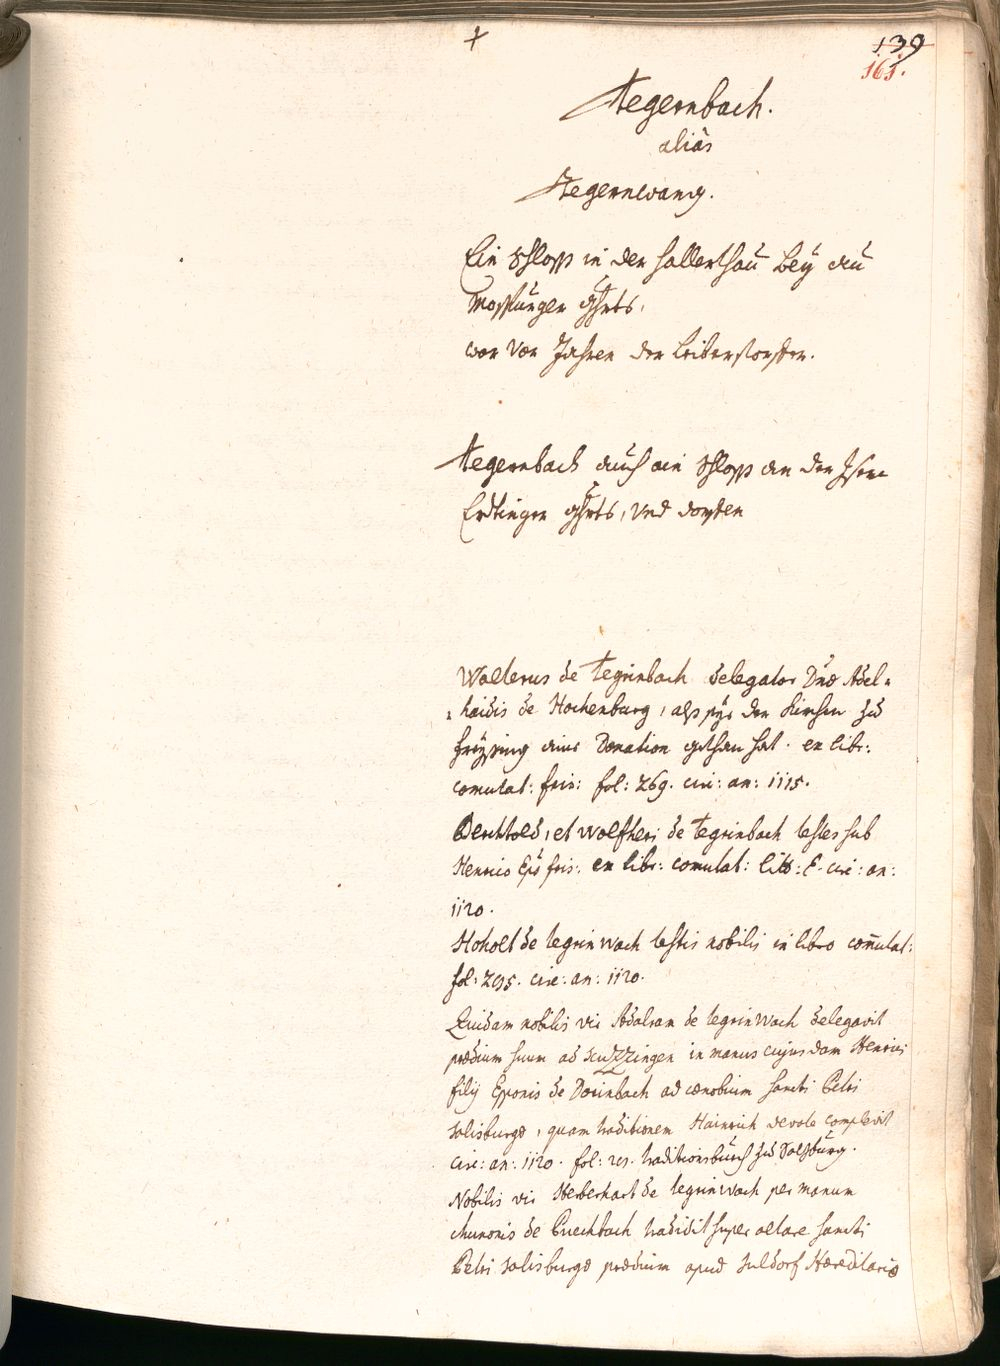 139
161.
Tegernbach.
aliàs
Tegernwang.
Ein Schloss in der Hallerthaü beÿ au
Mosspurger ghrts,
war vor Jahren der Leiberstorffer.
Tegernbach auch ain Schloss an der Isen
Erdtinger ghrts, vnd dorffen
Walterus de Tegrinbach delegator Dnae Adel=
=haidis de Hochenburg, als sÿe der Kirchen zu
Freÿsing eine Donation gethan hat. ex libr:
comutat: fris: fol: 269. circ: an: 1115.
Berchtold, et Wolftheri de Tegrinbach testes sub
Henrico Epo fris: ex libr: comutat: litt: E. circ: an:
1120.
Hoholt de tegrinwach testis nobilis in libro comutat:
fol: 295. circ: an: 1120.
Quidam nobilis vir Adalram de tegrinwach delegavit
praedium suum ad scuzzingen in manus cujusdam Henrici
filij Epponis de Dorinbach ad coenobium sancti Petri
salisburgae, quam traditionem Hainrich devote complevit
circ: an: 1120. fol: 21. traditionsbuech zu Salzburg.
Nobilis vir Herberhart de tegrinwach per manum
chunonis de Puechbach tradidit super altare sancti
Petri salisburgae praedium apud suldorf Haereditariae